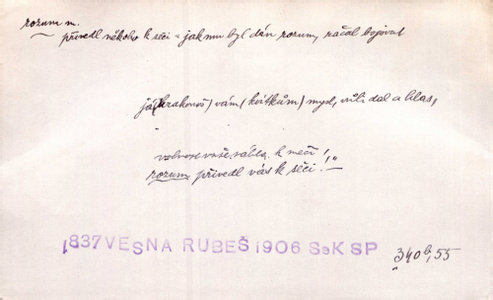 rozum m.
přivedl někoho k seči = jak mu byl dán rozum, začal bojovat
já (Krakonoš) vám (kvítkům) mysl, vůli dal a hlas,
volnost vaše, k meči!„
rozum přivedl vás k seči. –
1837 VESNA RUBEŠ 1906 SSK SP
340b, 55